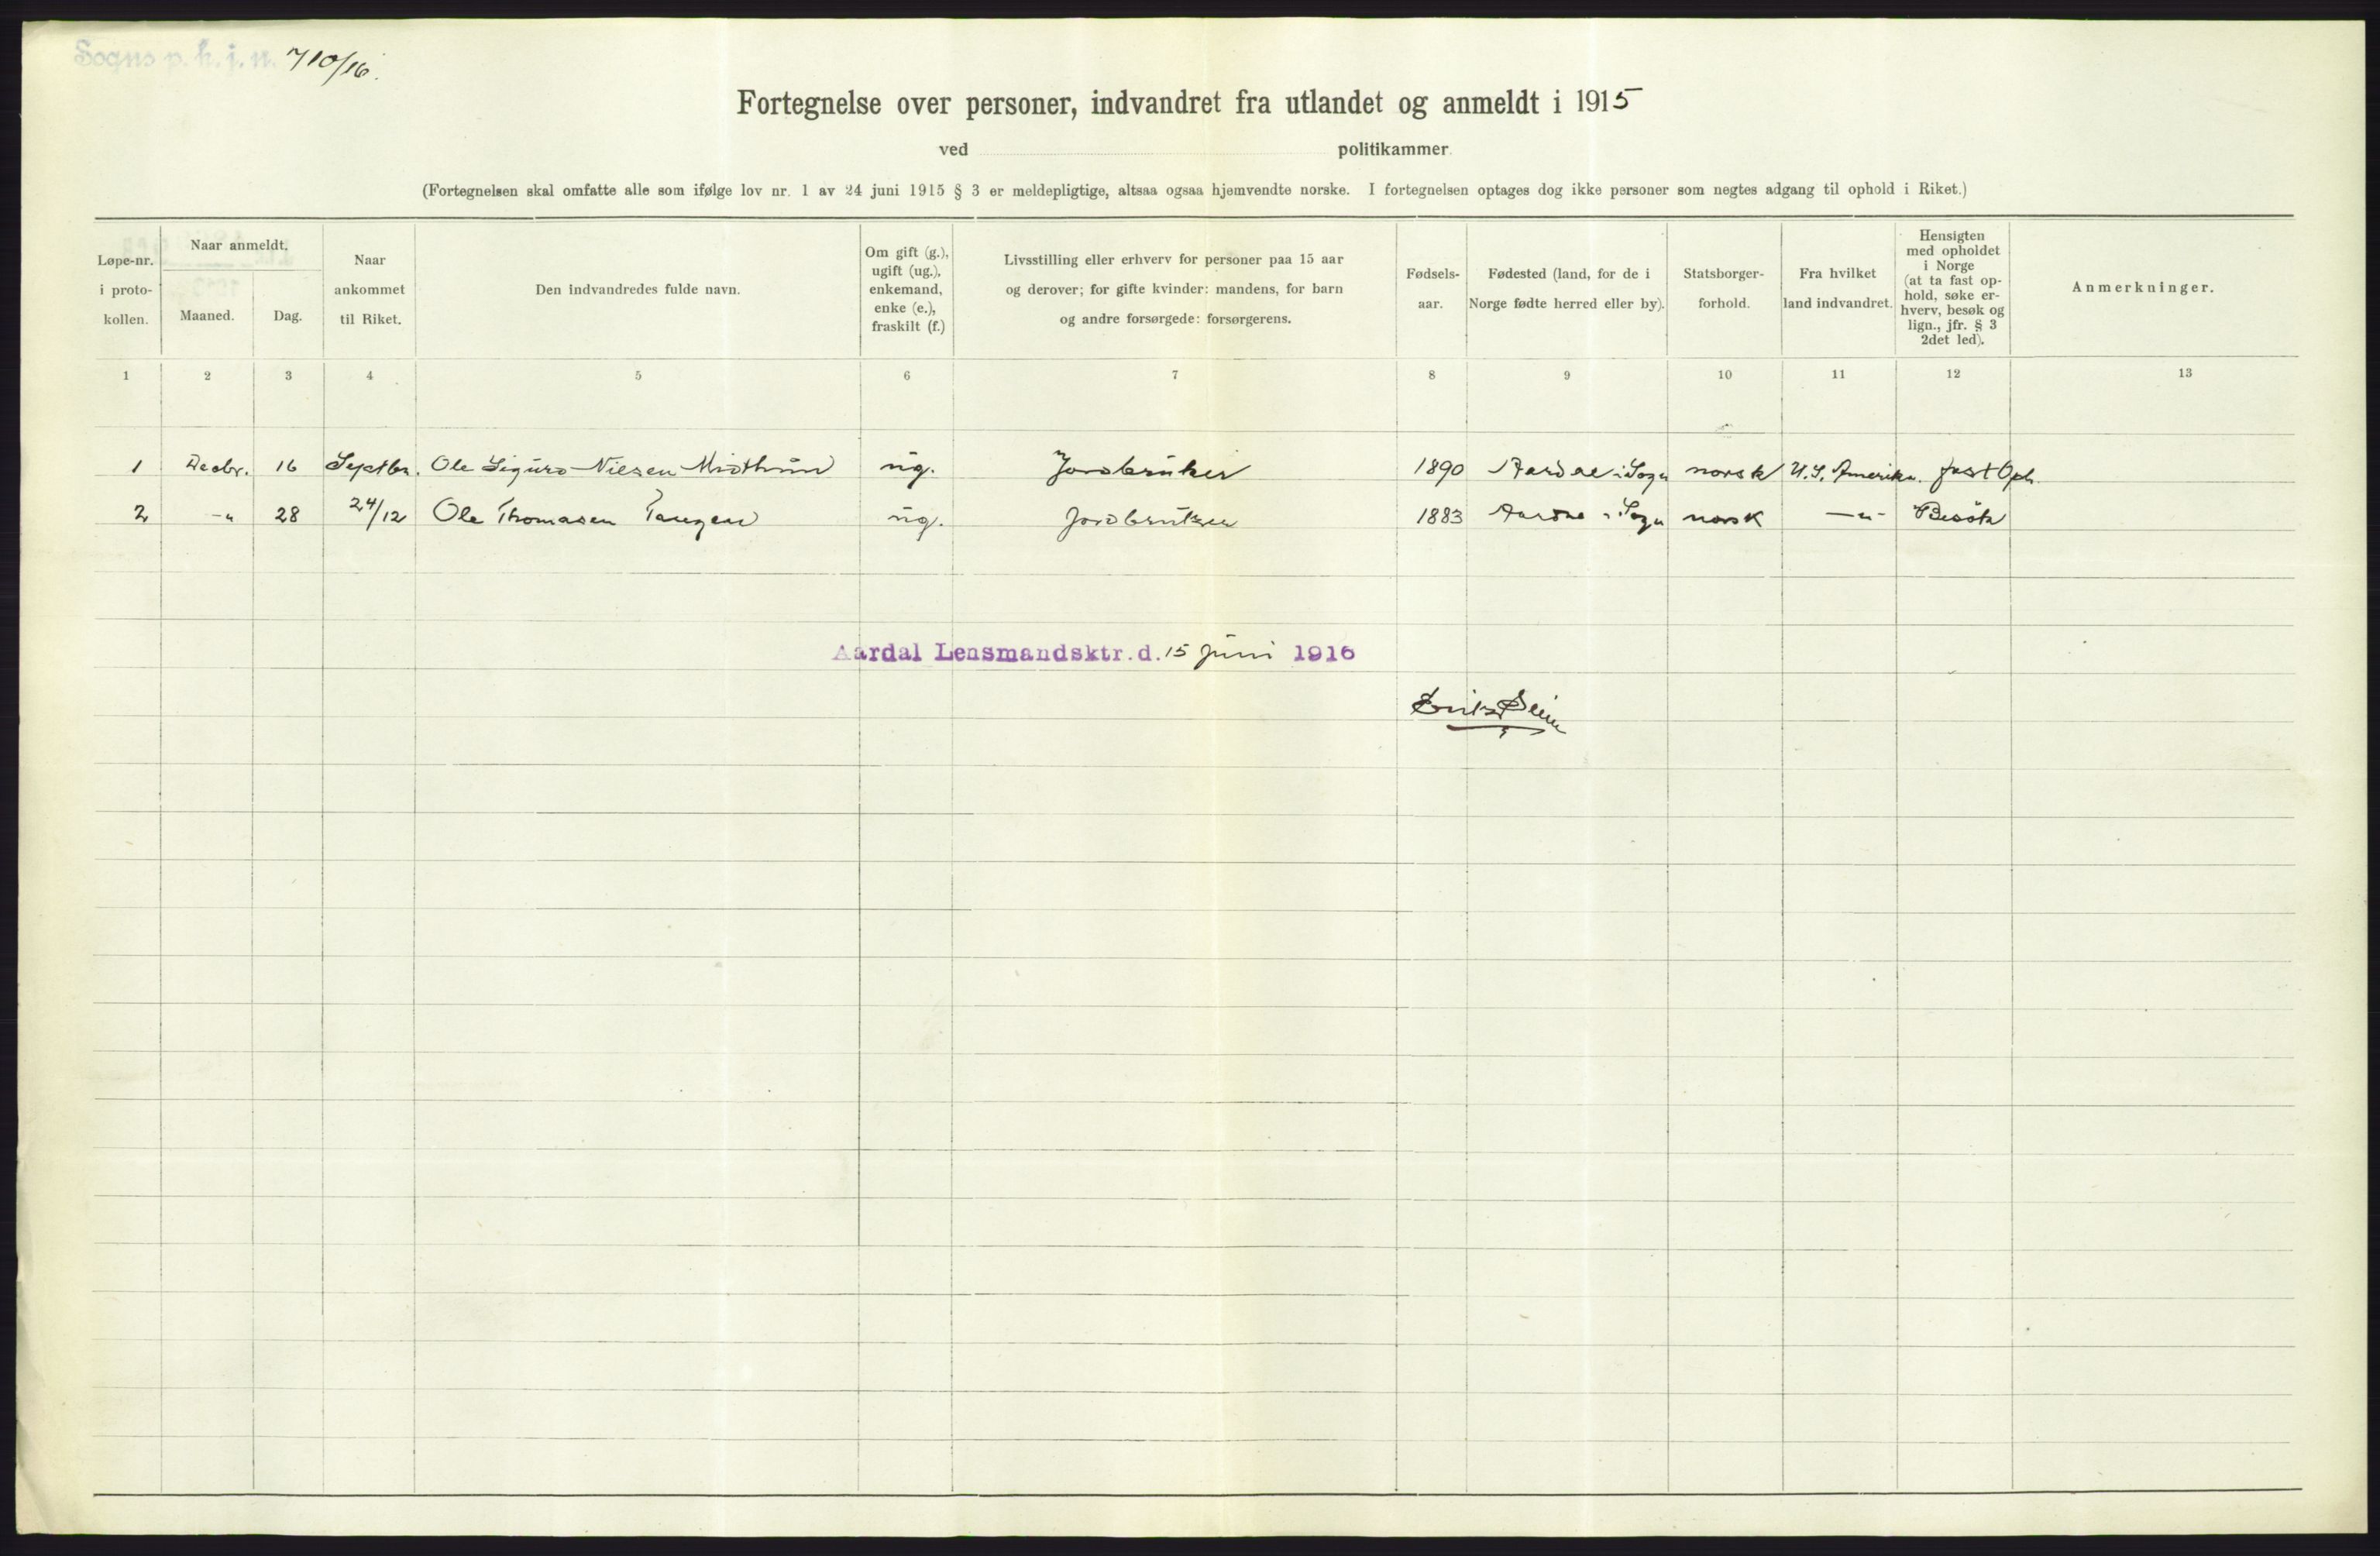 Sogns p. k. j. n. 710/16.
Fortegnelse over personer, indvandret fra utlandet og anmeldt i 1915
ved politikammer
(Fortegnelsen skal omfatte alle som ifølge lov nr. 1 av 24 juni 1915 § 3 er meldepligtige, altsaa ogsaa hjemvendte norske. I fortegnelsen optages dog ikke personer som negtes adgang til ophold i Riket.)
Løpe-nr. i proto- kollen.
Naar anmeldt.
Maaned.
Dag.
Naar ankommet til Riket.
Den indvandredes fulde navn.
Om gift (g.), ugift (ug.), enkemand, enke (e.), fraskilt (f.)
Livsstilling eller erhverv for personer paa 15 aar
og derover; for gifte kvinder: mandens, for barn
og andre forsørgede: forsørgerens.
Fødsels- aar.
Fødested (land, for de i
Norge fødte herred eller by).
Statsborger- forhold.
Fra hvilket land indvandret.
Hensigten
med opholdet
i Norge
(at ta fast op-
hold, søke er-
hverv, besøk og
lign., jfr. § 3
2det led).
Anmerkninger.
1 2 3 4 5 6 7 8 9 10 11 12 13
1 Decbr. 16 Septbr. Ole Sigurd Nilsen Midthun ug. Jordbruker 1890 Aardal i Sogn norsk U.S. Amerika. fast Oph.
2 -"- 28 24/12 Ole Thomasen Tangen ug. Jordbruker 1883 Aardal i Sogn norsk -"- Besök
Aardal Lensmandsktr. d. 15 juni 1916
Erik Seim